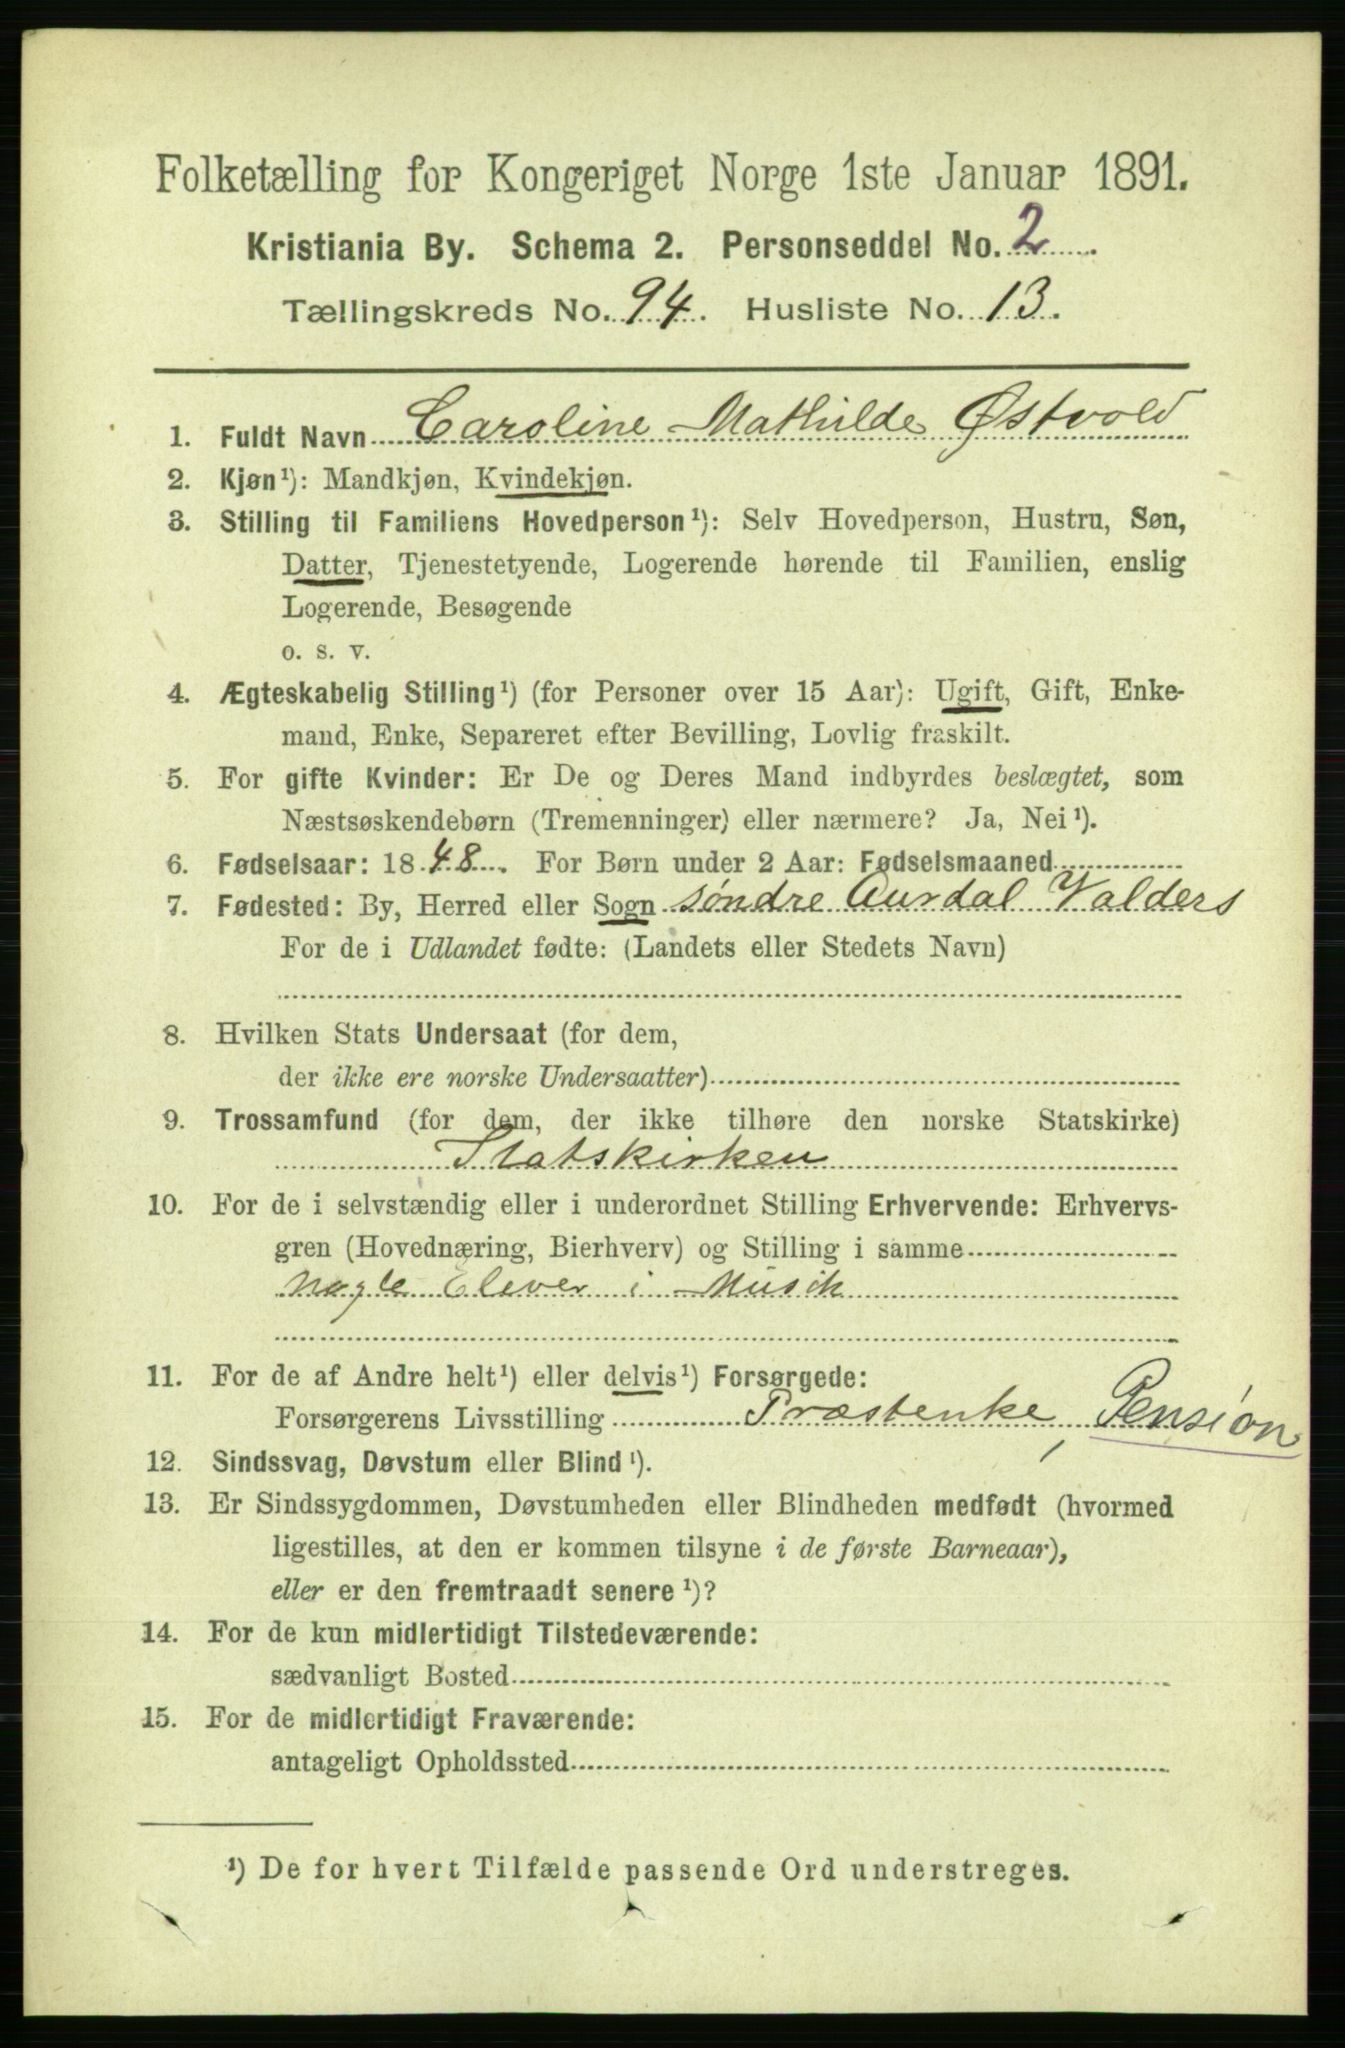 Folketælling for Kongeriget Norge 1ste Januar 1891.
Kristiania By. Schema 2. Personseddel No. 2
Tællingskreds No. 94. Husliste No. 13.
1. Fuldt Navn Caroline Mathilde Østvold
2. Kjøn¹): Mandkjøn, Kvindekjøn.
3. Stilling til Familiens Hovedperson¹): Selv Hovedperson, Hustru, Søn,
Datter, Tjenestetyende, Logerende hørende til Familien, enslig
Logerende, Besøgende
o. s. v.
4. Ægteskabelig Stilling¹) (for Personer over 15 Aar): Ugift, Gift, Enke-
mand, Enke, Separeret efter Bevilling, Lovlig fraskilt.
5. For gifte Kvinder: Er De og Deres Mand indbyrdes beslægtet, som
Næstsøskendebørn (Tremenninger) eller nærmere? Ja, Nei¹).
6. Fødselsaar: 1848. For Børn under 2 Aar: Fødselsmaaned
7. Fødested: By, Herred eller Sogn søndre Aurdal Valders
For de i Udlandet fødte: (Landets eller Stedets Navn)
8. Hvilken Stats Undersaat (for dem,
der ikke ere norske Undersaatter)
9. Trossamfund (for dem, der ikke tilhøre den norske Statskirke)
Statskirken
10. For de i selvstændig eller i underordnet Stilling Erhvervende: Erhvervs-
gren (Hovednæring, Bierhverv) og Stilling i samme
Nogle Elever i Musik
11. For de af Andre helt¹) eller delvis¹) Forsørgede:
Forsørgerens Livsstilling Præstenke, Pension
12. Sindssvag, Døvstum eller Blind¹).
13. Er Sindssygdommen, Døvstumheden eller Blindheden medfødt (hvormed
ligestilles, at den er kommen tilsyne i de første Barneaar),
eller er den fremtraadt senere¹)?
14. For de kun midlertidigt Tilstedeværende:
sædvanligt Bosted
15. For de midlertidigt Fraværende:
antageligt Opholdssted
¹) De for hvert Tilfælde passende Ord understreges.